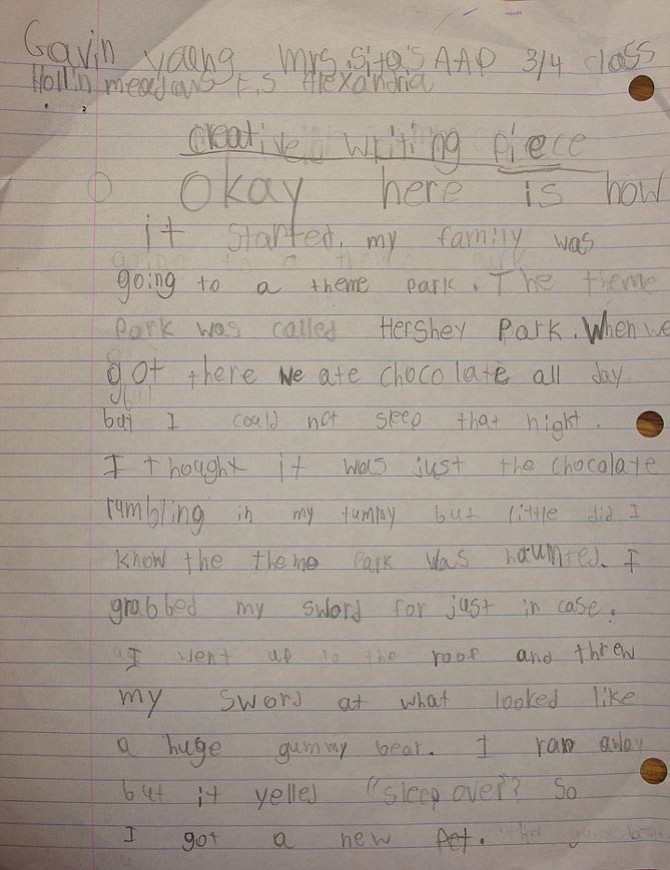 Gavin young Mrs. Sita's AAP 3/4 class
Hollin meadows E.S Alexandria
creative writing piece
Okay here is how
it started. my family was
going to a theme park. The theme
Park was called Hershey Park. When we
got there we ate chocolate all day
but I could not sleep that night.
I thought it was just the chocolate
rumbling in my tummy but little did I
know the theme Park was haunted. I
grabbed my sword for just in case.
I went up to the roof and threw
my sword at what looked like
a huge gummy bear. I ran away
but it yelled "sleep over"? So
I got a new Pet.